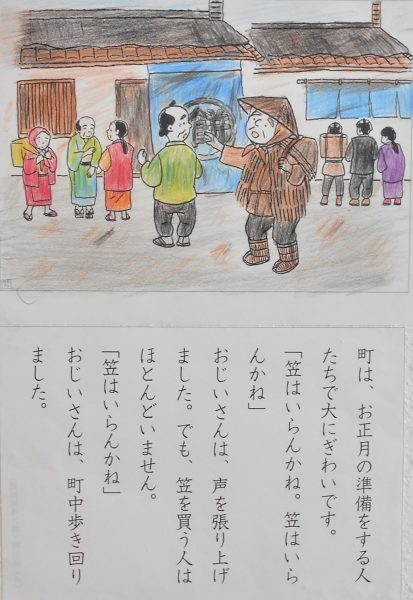 町は、お正月の準備をする人
たちで大にぎわいです。
「笠はいらんかね。笠はいら
んかね」
おじいさんは、声を張り上げ
ました。でも、笠を買う人は
ほとんどいません。
「笠はいらんかね」
おじいさんは、町中歩き回り
ました。